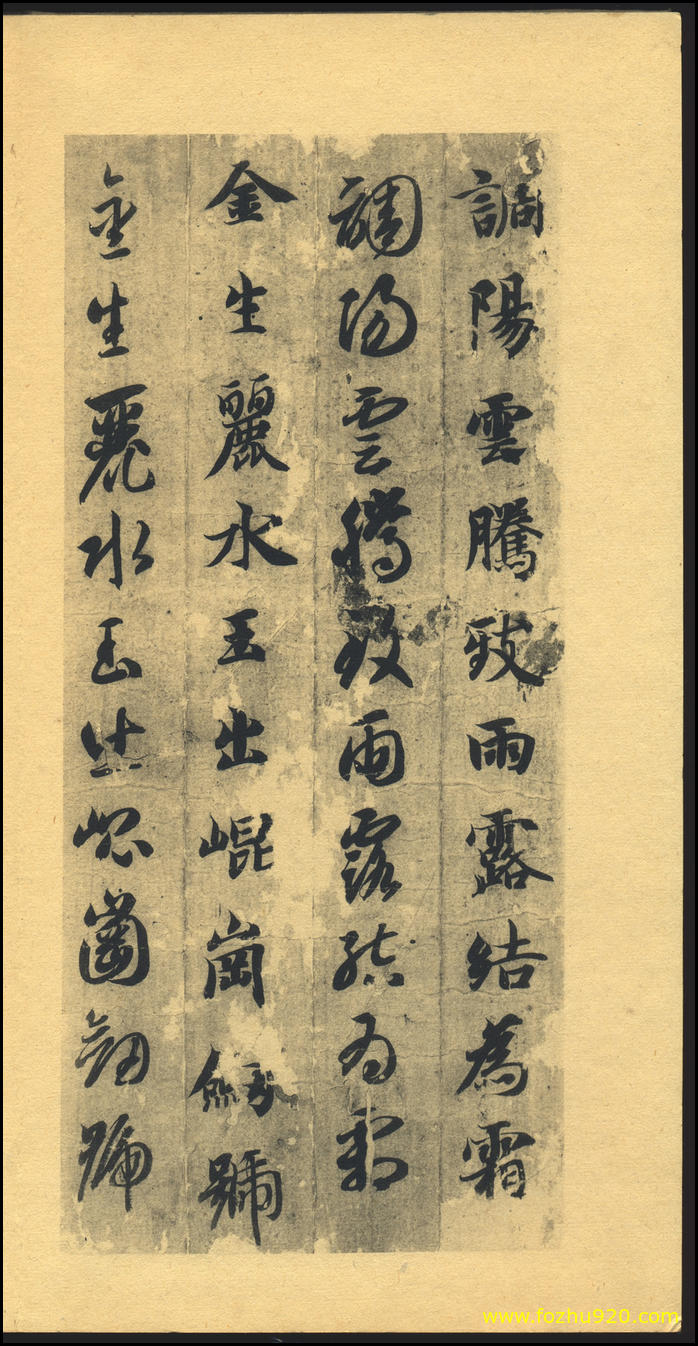 調陽雲騰致雨露結為霜
調陽雲騰致雨露結為霜
金生麗水玉出崐崗劒號
金生麗水玉出崐崗劒號
www.fozhu920.com